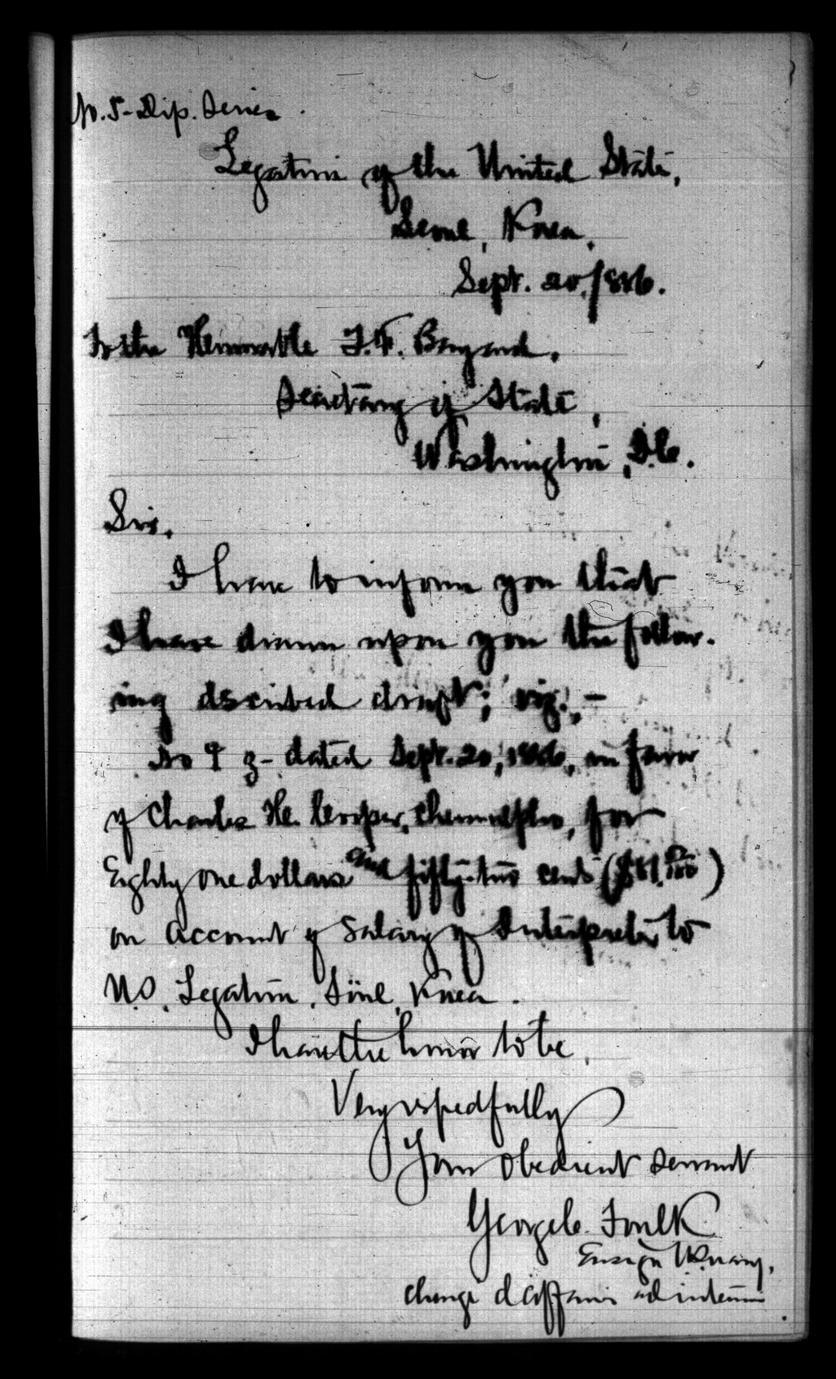 No. 5 - Dip. Series.
Legation of the United States,
Seoul, Korea,
Sept. 20, 1886.
To the Honorable T. F. Bayard,
Secretary of State,
Washington, D.C.
Sir,
I have to inform you that
I have drawn upon you the follow-
ing described draft; viz., -
dated Sept. 20, 1886, in favor
of Charles H. Cooper, Chemulpho, for
Eighty one dollars and fifty-two cents ($81.
on account of Salary of Interpreter to
U.S. Legation, Söul, Korea.
I have the honor to be,
Very respectfully
Your obedient servant
George C. Foulk
Ensign U.S. Navy,
Chargé d'affaires ad interim